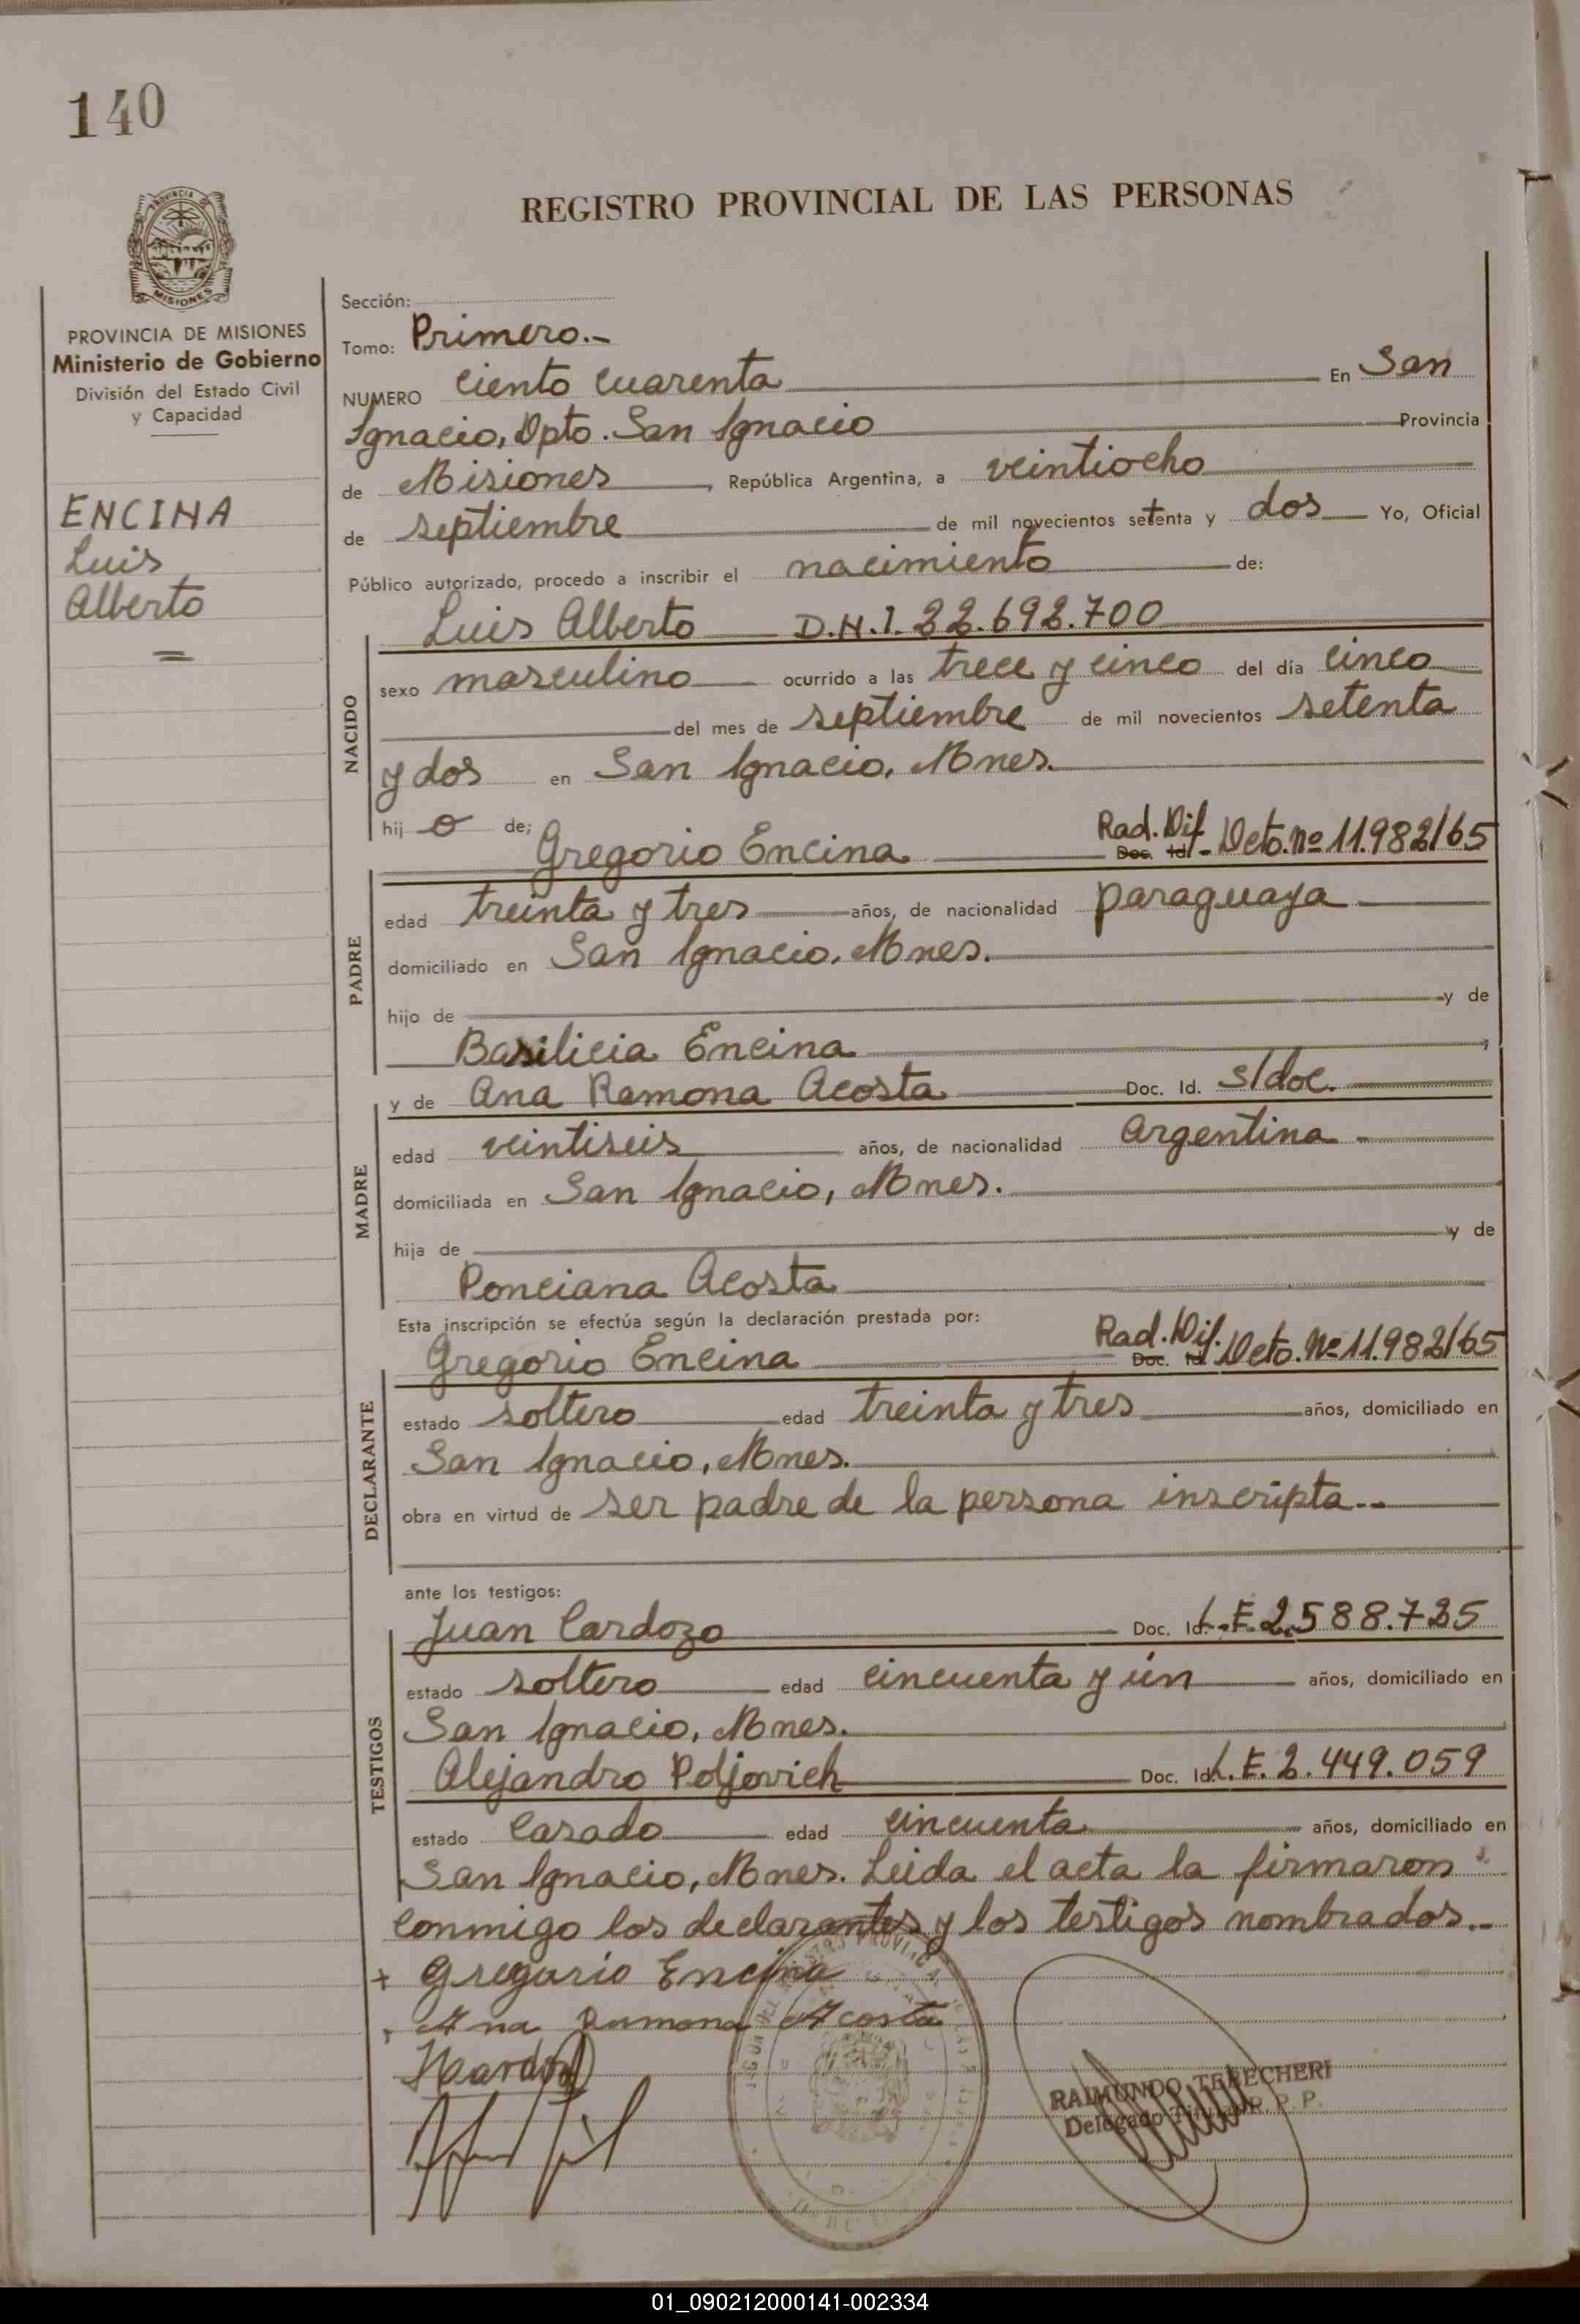 140
REGISTRO PROVINCIAL DE LAS PERSONAS
PROVINCIA
MISIONES
PROVINCIA DE MISIONES
Ministerio de Gobierno
División del Estado Civil
y Capacidad
ENCINA
Luis
Alberto
Sección:
Tomo: Primero.-
NUMERO ciento cuarenta En San
Ignacio, Dpto. San Ignacio Provincia
de Misiones, República Argentina, a veintiocho
de septiembre de mil novecientos setenta y dos Yo, Oficial
Público autorizado, procedo a inscribir el nacimiento de:
Luis Alberto D.N.I. 22.692.700
NACIDO
sexo masculino ocurrido a las trece y cinco del día cinco
del mes de septiembre de mil novecientos setenta
y dos en San Ignacio, Mnes.
hij o de; Gregorio Encina Doc. Id. Rad. Dif. Dcto. nº 11.982/65
PADRE
edad treinta y tres años, de nacionalidad paraguaya
domiciliado en San Ignacio, Mnes.
hijo de y de
Basilicia Encina,
y de Ana Ramona Acosta Doc. Id. s/doc.
MADRE
edad veintiseis años, de nacionalidad argentina.-
domiciliada en San Ignacio, Mnes.
hija de y de
Ponciana Acosta
Esta inscripción se efectúa según la declaración prestada por:
Gregorio Encina Doc. Id. Rad. Dif. Dcto. Nº 11.982/65
DECLARANTE
estado soltero edad treinta y tres años, domiciliado en
San Ignacio, Mnes.
obra en virtud de ser padre de la persona inscripta.-
ante los testigos:
Juan Cardozo Doc. Id. L.E. 2.588.725
TESTIGOS
estado soltero edad cincuenta y ún años, domiciliado en
San Ignacio, Mnes.
Alejandro Poljovich Doc. Id. L.E. 2.449.059
estado casado edad cincuenta años, domiciliado en
San Ignacio, Mnes. Leida el acta la firmaron
conmigo los declarantes y los testigos nombrados.-
+ Gregorio Encina
Ana Ramona Acosta
RAIMUNDO TERECHERI
Delegado Titular R. P. P.
01_090212000141-002334